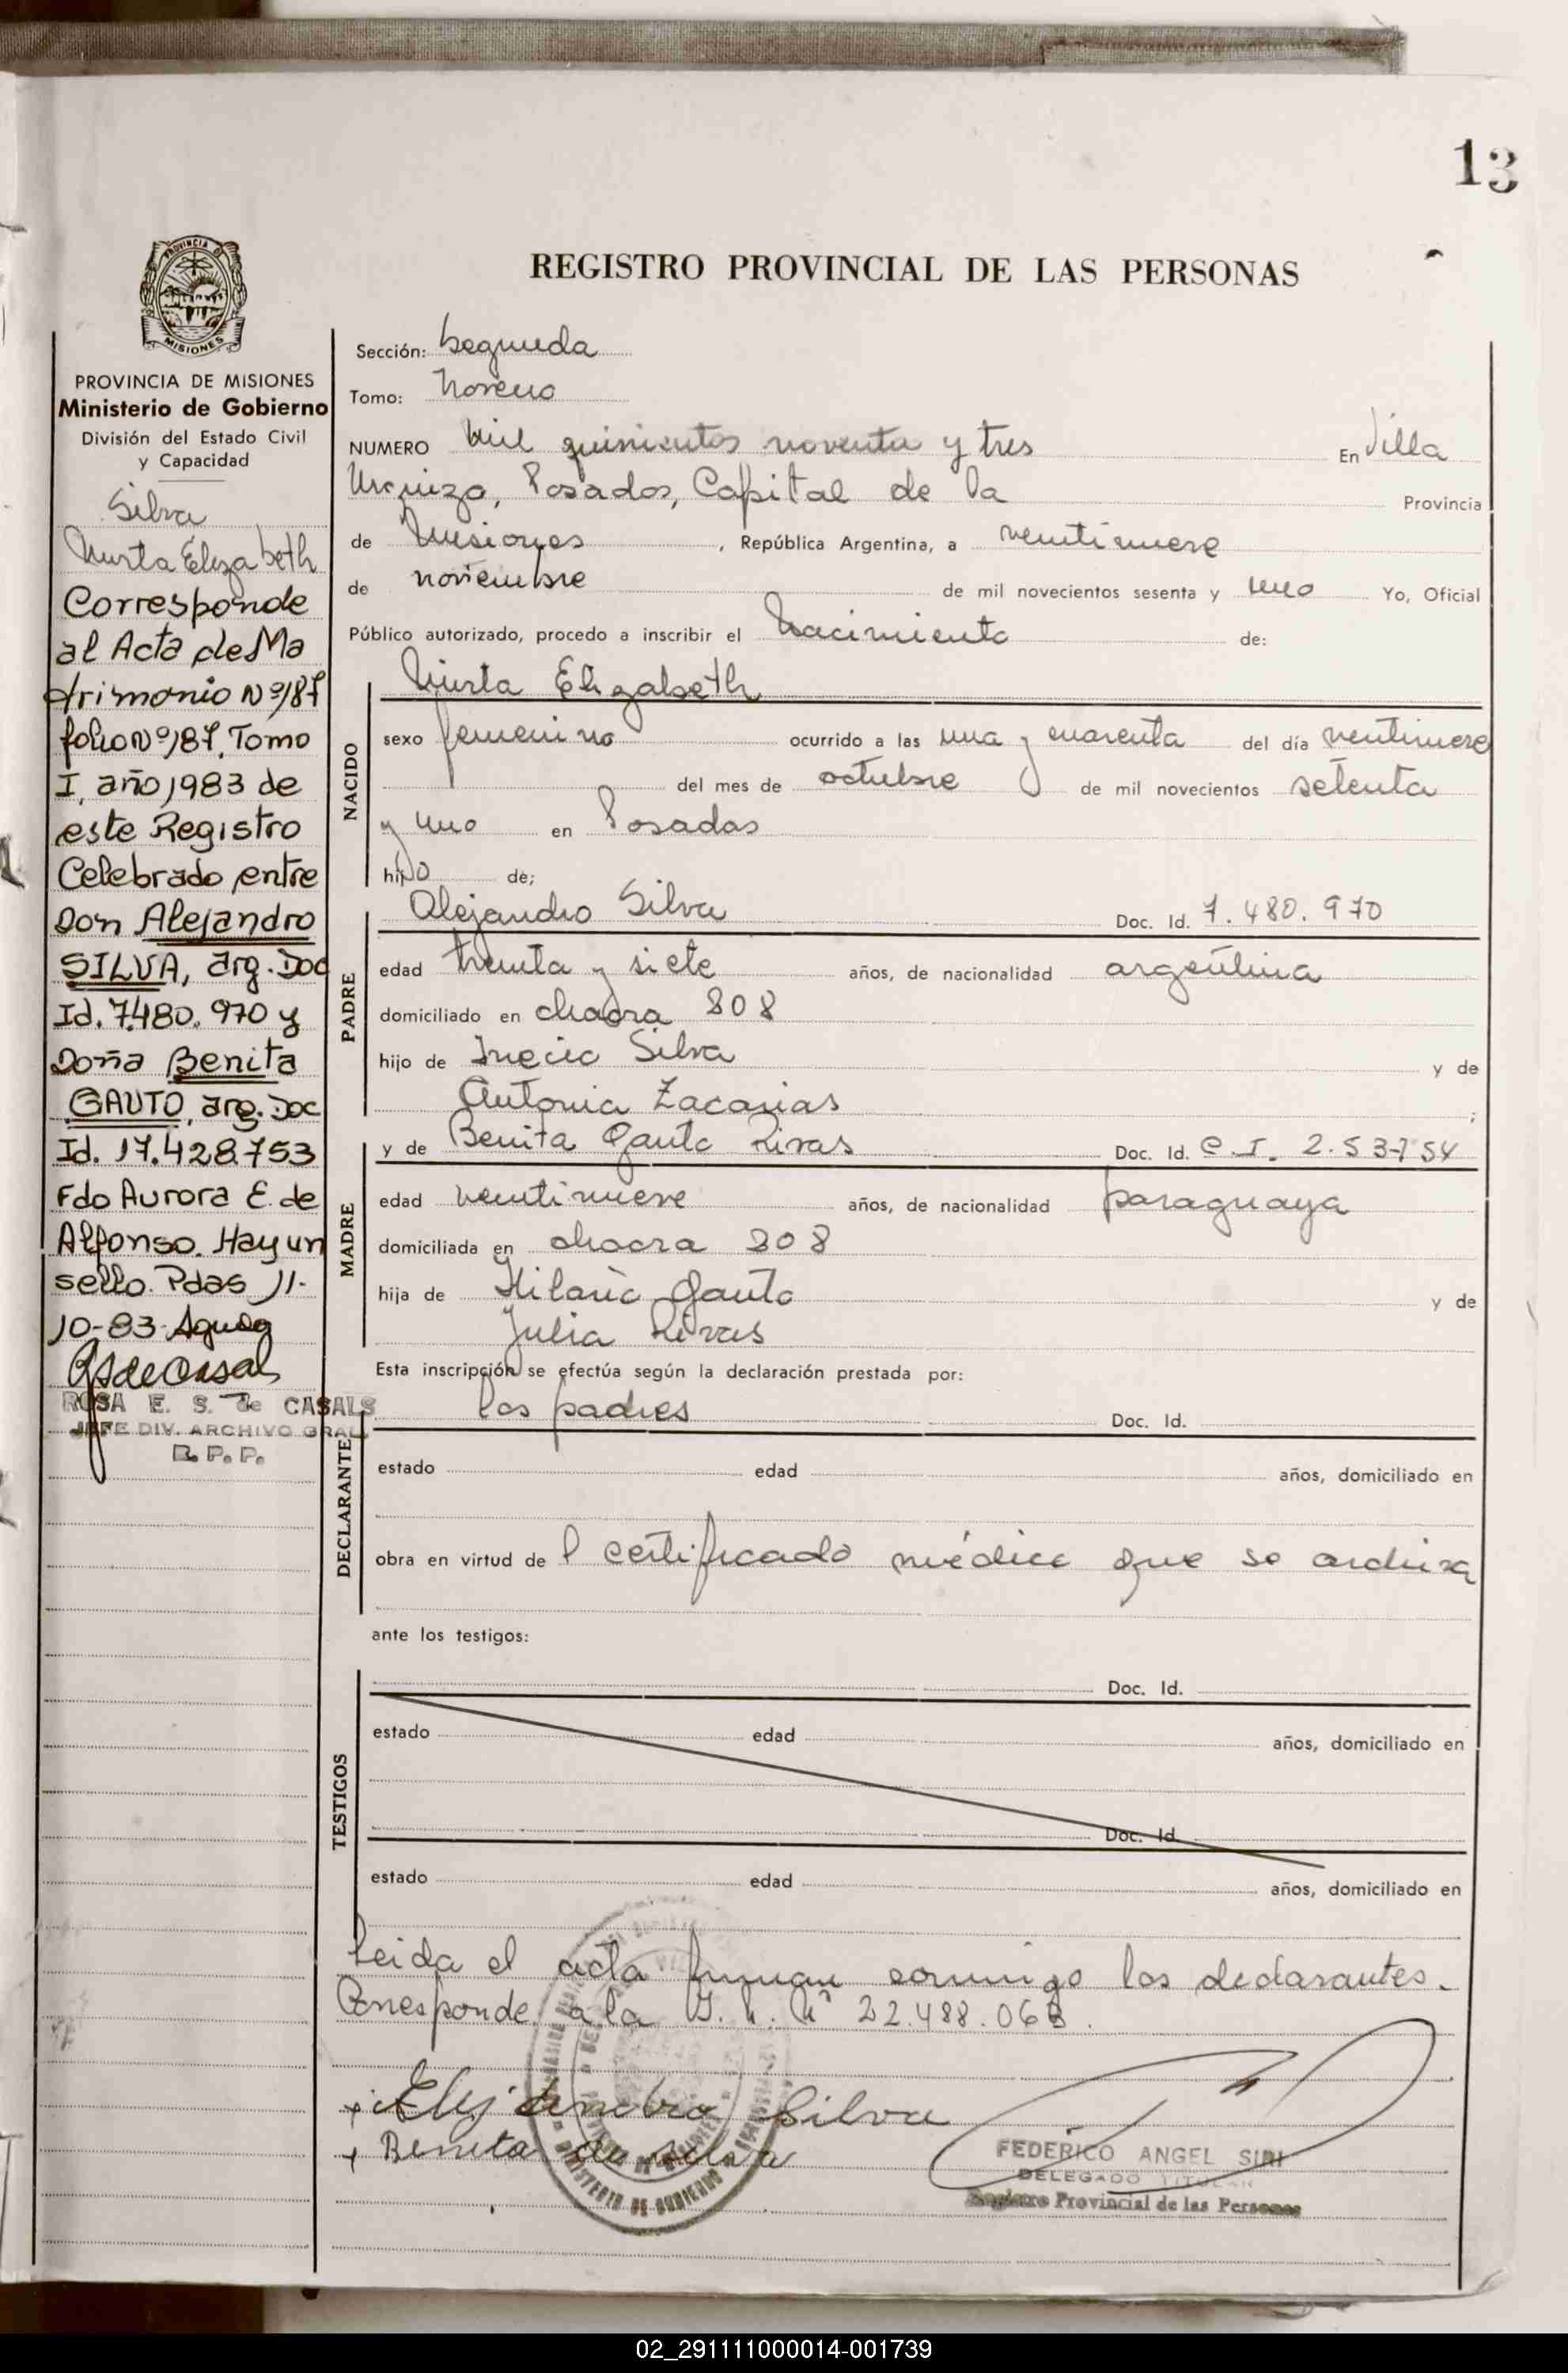 13
PROVINCIA DE
MISIONES
REGISTRO PROVINCIAL DE LAS PERSONAS
PROVINCIA DE MISIONES
Ministerio de Gobierno
División del Estado Civil
y Capacidad
Silva
Mirta Elizabeth
Corresponde
al Acta de Ma
trimonio Nº187
folio Nº187, Tomo
I, año 1983 de
este Registro
Celebrado entre
Don Alejandro
SILVA, arg. Doc
Id. 7.480.970 y
Doña Benita
GAUTO, arg. Doc
Id. 17.428.753
Fdo Aurora E. de
Alfonso. Hay un
sello. Pdas 11-
10-83.
ROSA E. S. de CASALS
JEFE DIV. ARCHIVO GRAL.
R. P. P.
Sección: Segunda
Tomo: Noveno
NUMERO Mil quinientos noventa y tres En Villa
Urquiza, Posadas, Capital de la Provincia
de Misiones, República Argentina, a veintinueve
de noviembre de mil novecientos sesenta y uno Yo, Oficial
Público autorizado, procedo a inscribir el Nacimiento de:
Mirta Elizabeth
NACIDO
sexo femenino ocurrido a las una y cuarenta del día veintinueve
del mes de octubre de mil novecientos setenta
y uno en Posadas
hijo de;
PADRE
Alejandro Silva Doc. Id. 7.480.970
edad treinta y siete años, de nacionalidad argentina
domiciliado en chacra 808
hijo de Inecio Silva y de
Antonia Zacarias ;
MADRE
y de Benita Gauto Rivas Doc. Id. C.I. 2.53754
edad veintinueve años, de nacionalidad paraguaya
domiciliada en chacra 808
hija de Hilario Gauto y de
Julia Rivas
Esta inscripción se efectúa según la declaración prestada por:
DECLARANTE
los padres Doc. Id.
estado edad años, domiciliado en
obra en virtud de l certificado médico que se archiva
ante los testigos:
TESTIGOS
Doc. Id.
estado edad años, domiciliado en
Doc. Id.
estado edad años, domiciliado en
Leida el acta firman conmigo los declarantes.
Corresponde a la 22.488.063.
Alejandro Silva
Benita de Silva
MINISTERIO DE GOBIERNO
FEDERICO ANGEL SIRI
DELEGADO TITULAR
Registro Provincial de las Personas
02_291111000014-001739